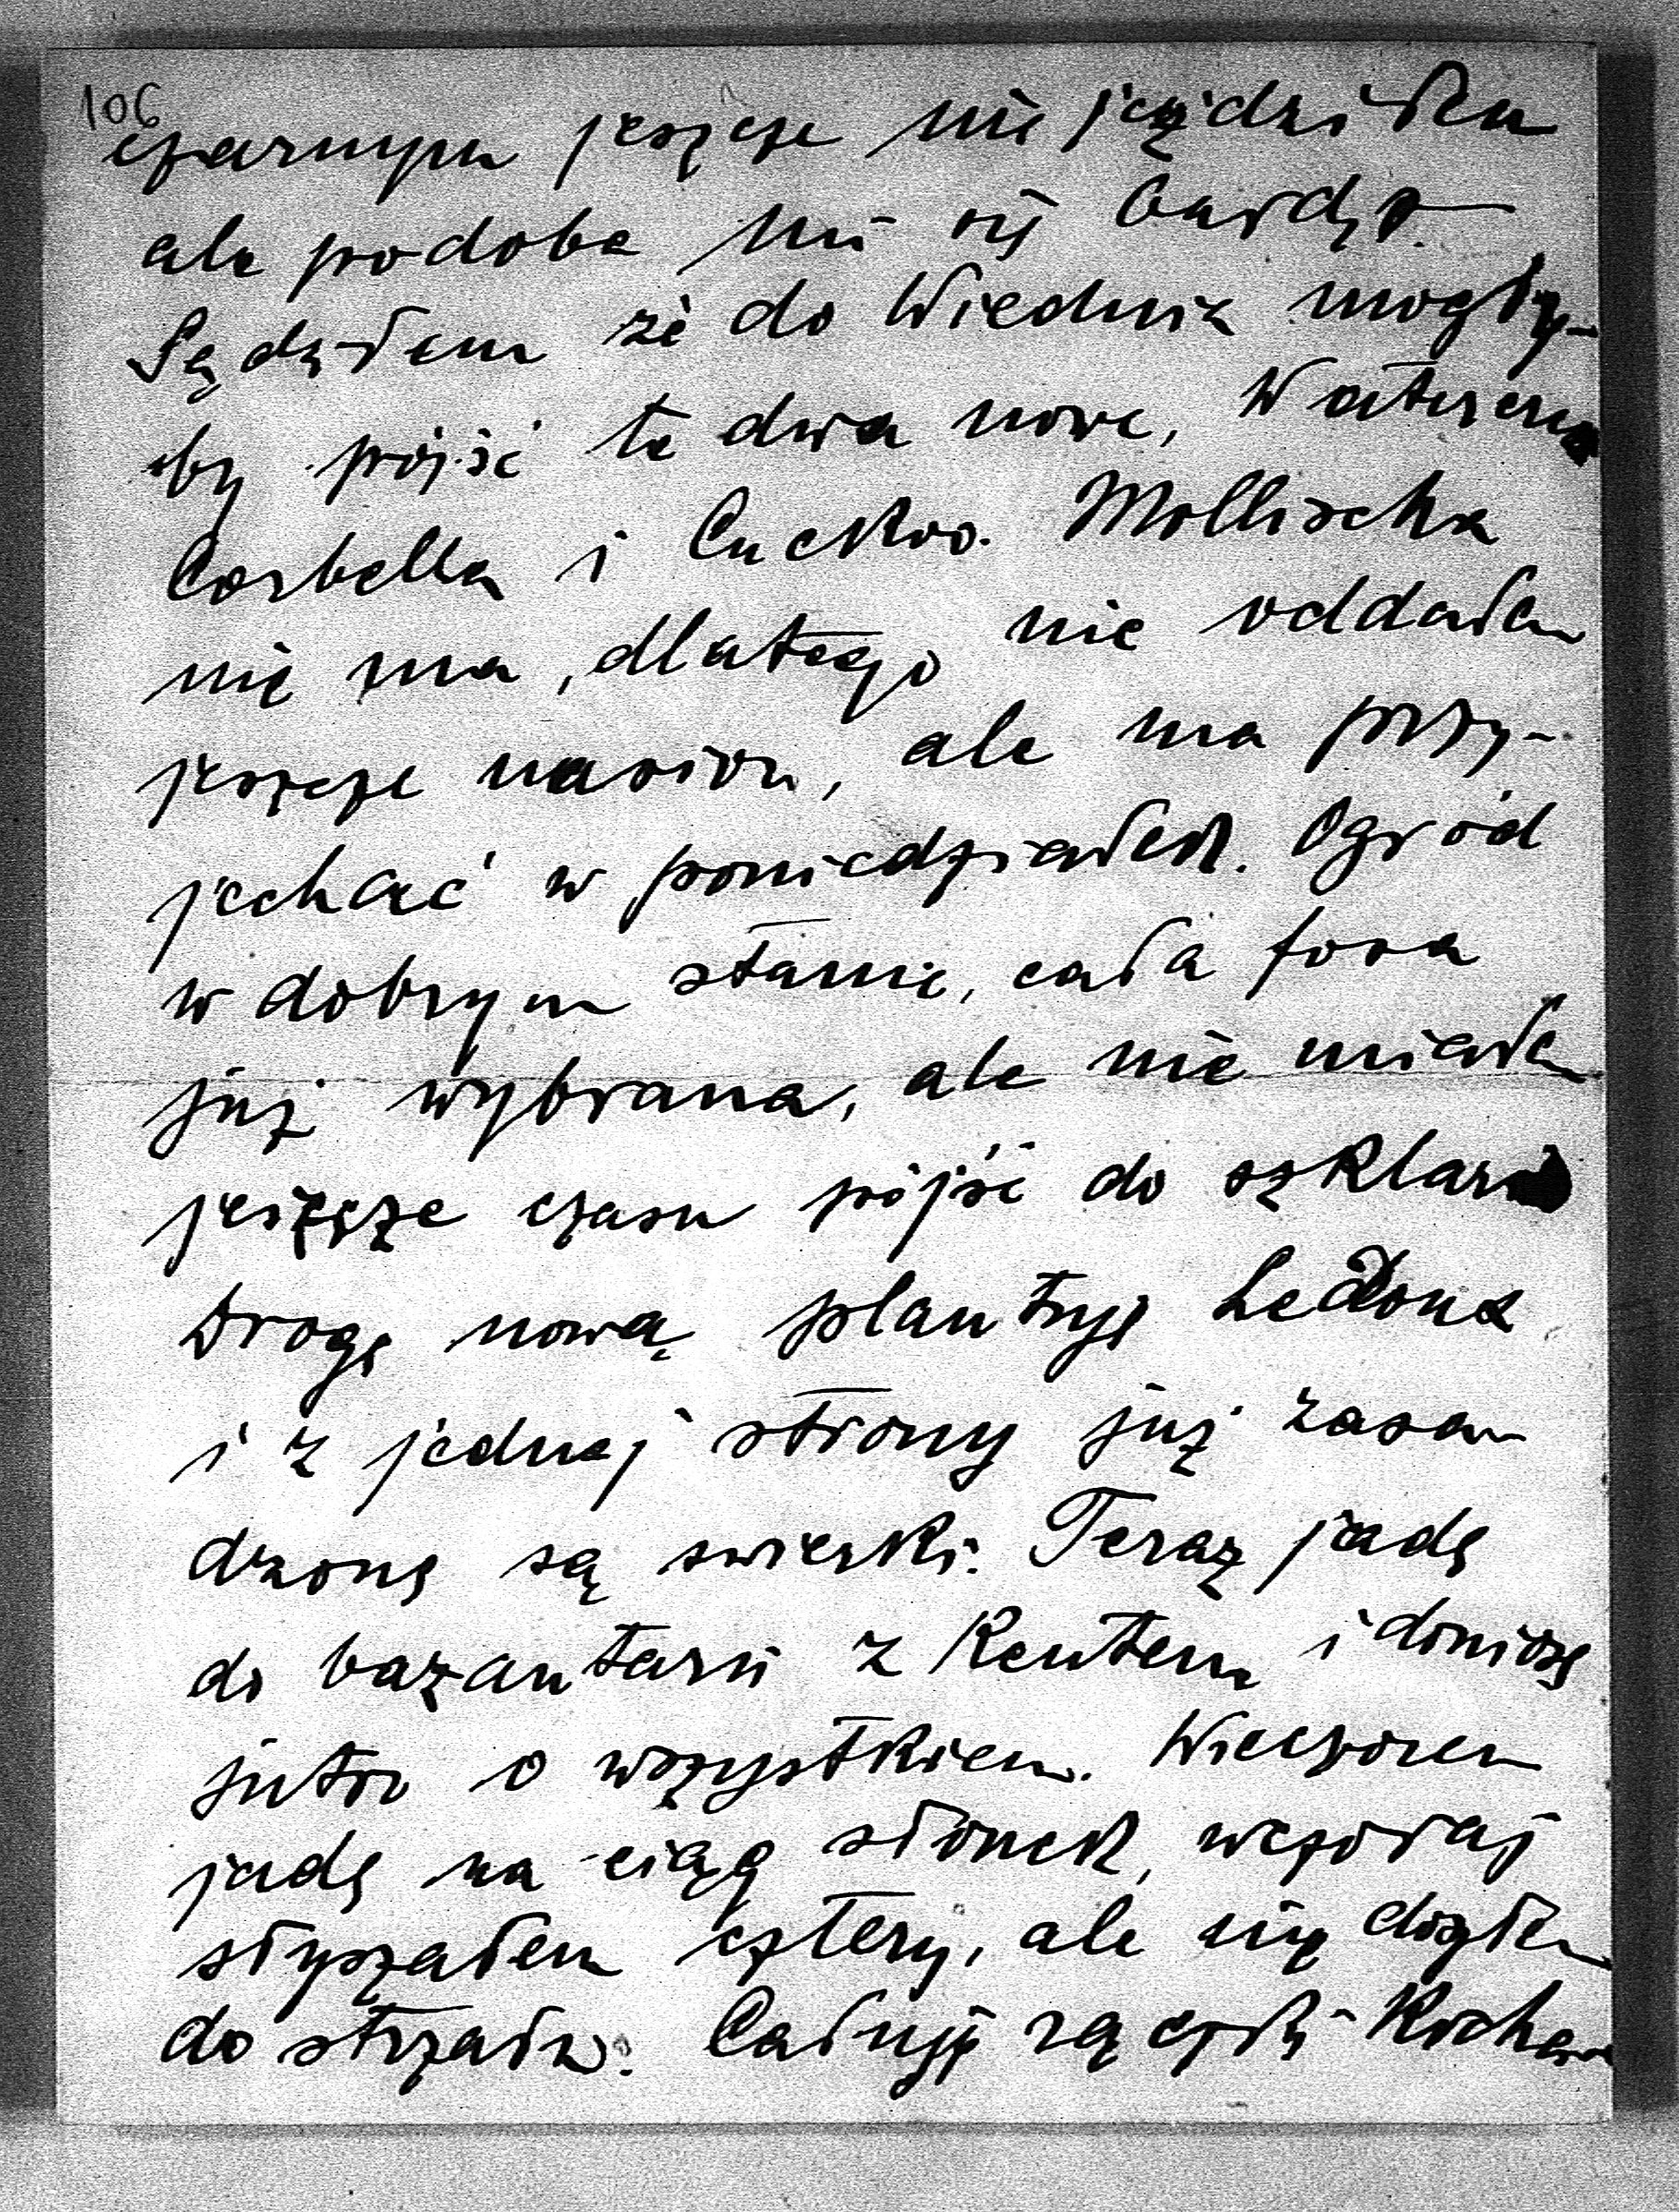 106
czarnym jeszcze nie jeździłem
ale podoba mi się bardzo.
Sądziłem że do Wiednia mogły-
by pójść te dwa nowe,
Corbella i Cuckoo. Mollischa
nie ma, dlatego nie oddałem
jeszcze nasion, ale ma przy-
jechać w poniedziałek. Ogród
w dobrym stanie, cała fosa
już wybrana, ale nie miałem
jeszcze czasu pójść do szklarni
Drogę nową plantuję
i z jednej strony już zasa-
dzone są swierki. Teraz jadę
do bazantarni z Reutem i doniosę
jutro o wszystkiem. Wieczorem
jadę na ciąg słonek, wczoraj
słyszałem cztery, ale nie doszłem
do strzału. Całuję rączki Kochanej